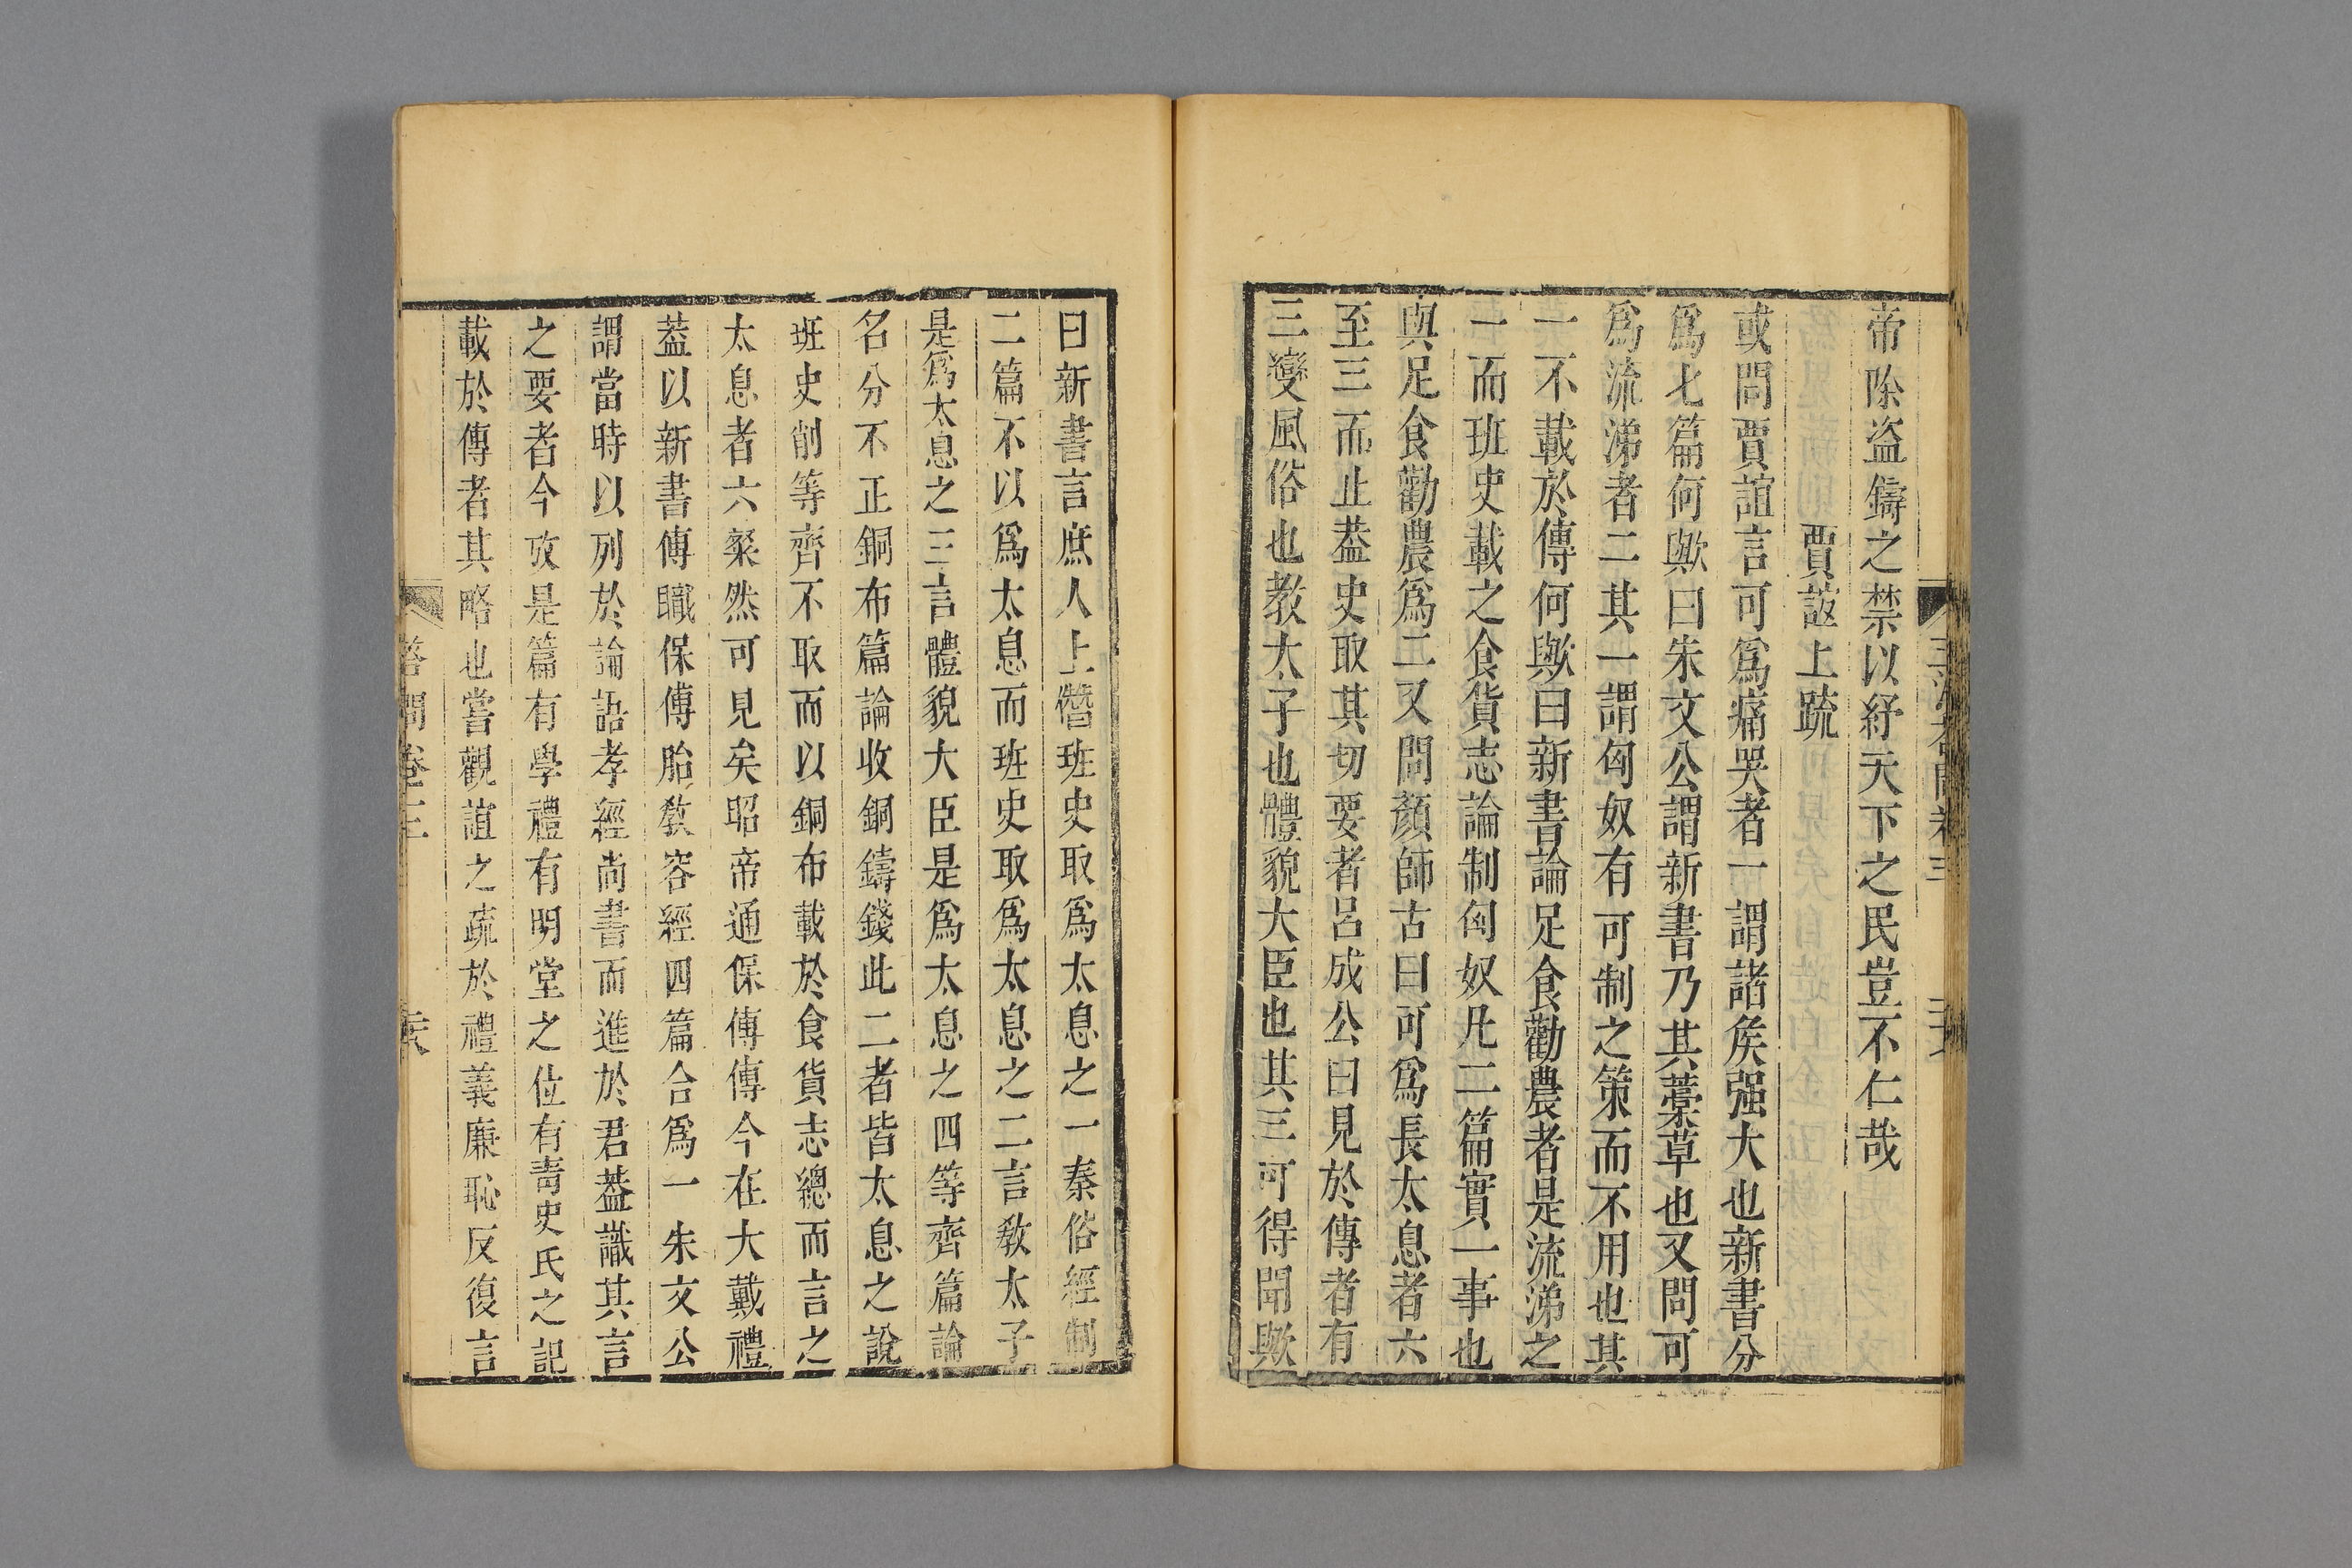 帝除盜鑄之禁以紓天下之民豈不仁哉
賈誼上䟽
或問賈誼言可爲痛哭者一謂諸矦强大也新書分
爲七篇何歟曰朱文公謂新書乃其藁草也又問可
爲流涕者二其一謂匈奴有可制之策而不用也其
一不載於傳何歟曰新書論足食勸農者是流涕之
一而班史載之食貨志論制匈奴凡二篇實一事也
與足食勸農爲二又問顏師古曰可爲長太息者六
至三而止葢史取其切要者呂成公曰見於傳者有
三變風俗也教太子也體貌大臣也其三可得聞歟
曰新書言庶人上僭班史取爲太息之一秦俗經制
二篇不以爲太息而班史取爲太息之二言敎太子
是爲太息之三言體貌大臣是爲太息之四等齊篇論
名分不正銅布篇論收銅鑄錢此二者皆太息之說
班史削等齊不取而以銅布載於食貨志總而言之
太息者六粲然可見矣昭帝通保傅傳今在大戴禮
葢以新書傅職保傅胎敎容經四篇合爲一朱文公
謂當時以列於論語孝經尚書而進於君葢識其言
之要者今攷是篇有學禮有明堂之位有靑史氏之記
載於傳者其略也嘗觀誼之疏於禮義廉恥反復言
答問卷三